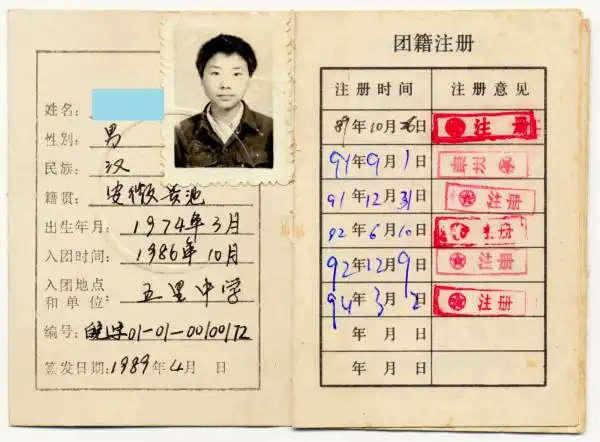 姓名:
性别: 男
民族: 汉
籍贯: 安徽贵池
出生年月: 1974年3月
入团时间: 1986年10月
入团地点
和单位: 五里中学
编号: 01-01-00100172
签发日期: 1989年4月 日
团籍注册
注册时间 注册意见
89年10月26日 注册
91年9月1日 注册
91年12月31日 注册
92年6月10日 注册
92年12月9日 注册
94年3月2日 注册
年 月 日
年 月 日